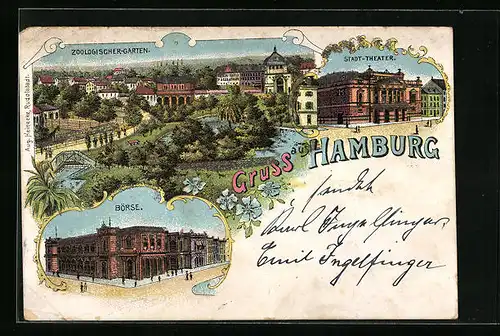 ZOOLOGISCHER-GARTEN.
STADT-THEATER.
Aug. Reincke, Rudolstadt.
Gruss aus HAMBURG
BÖRSE.
sendet
Ingelfinger
Emil Ingelfinger